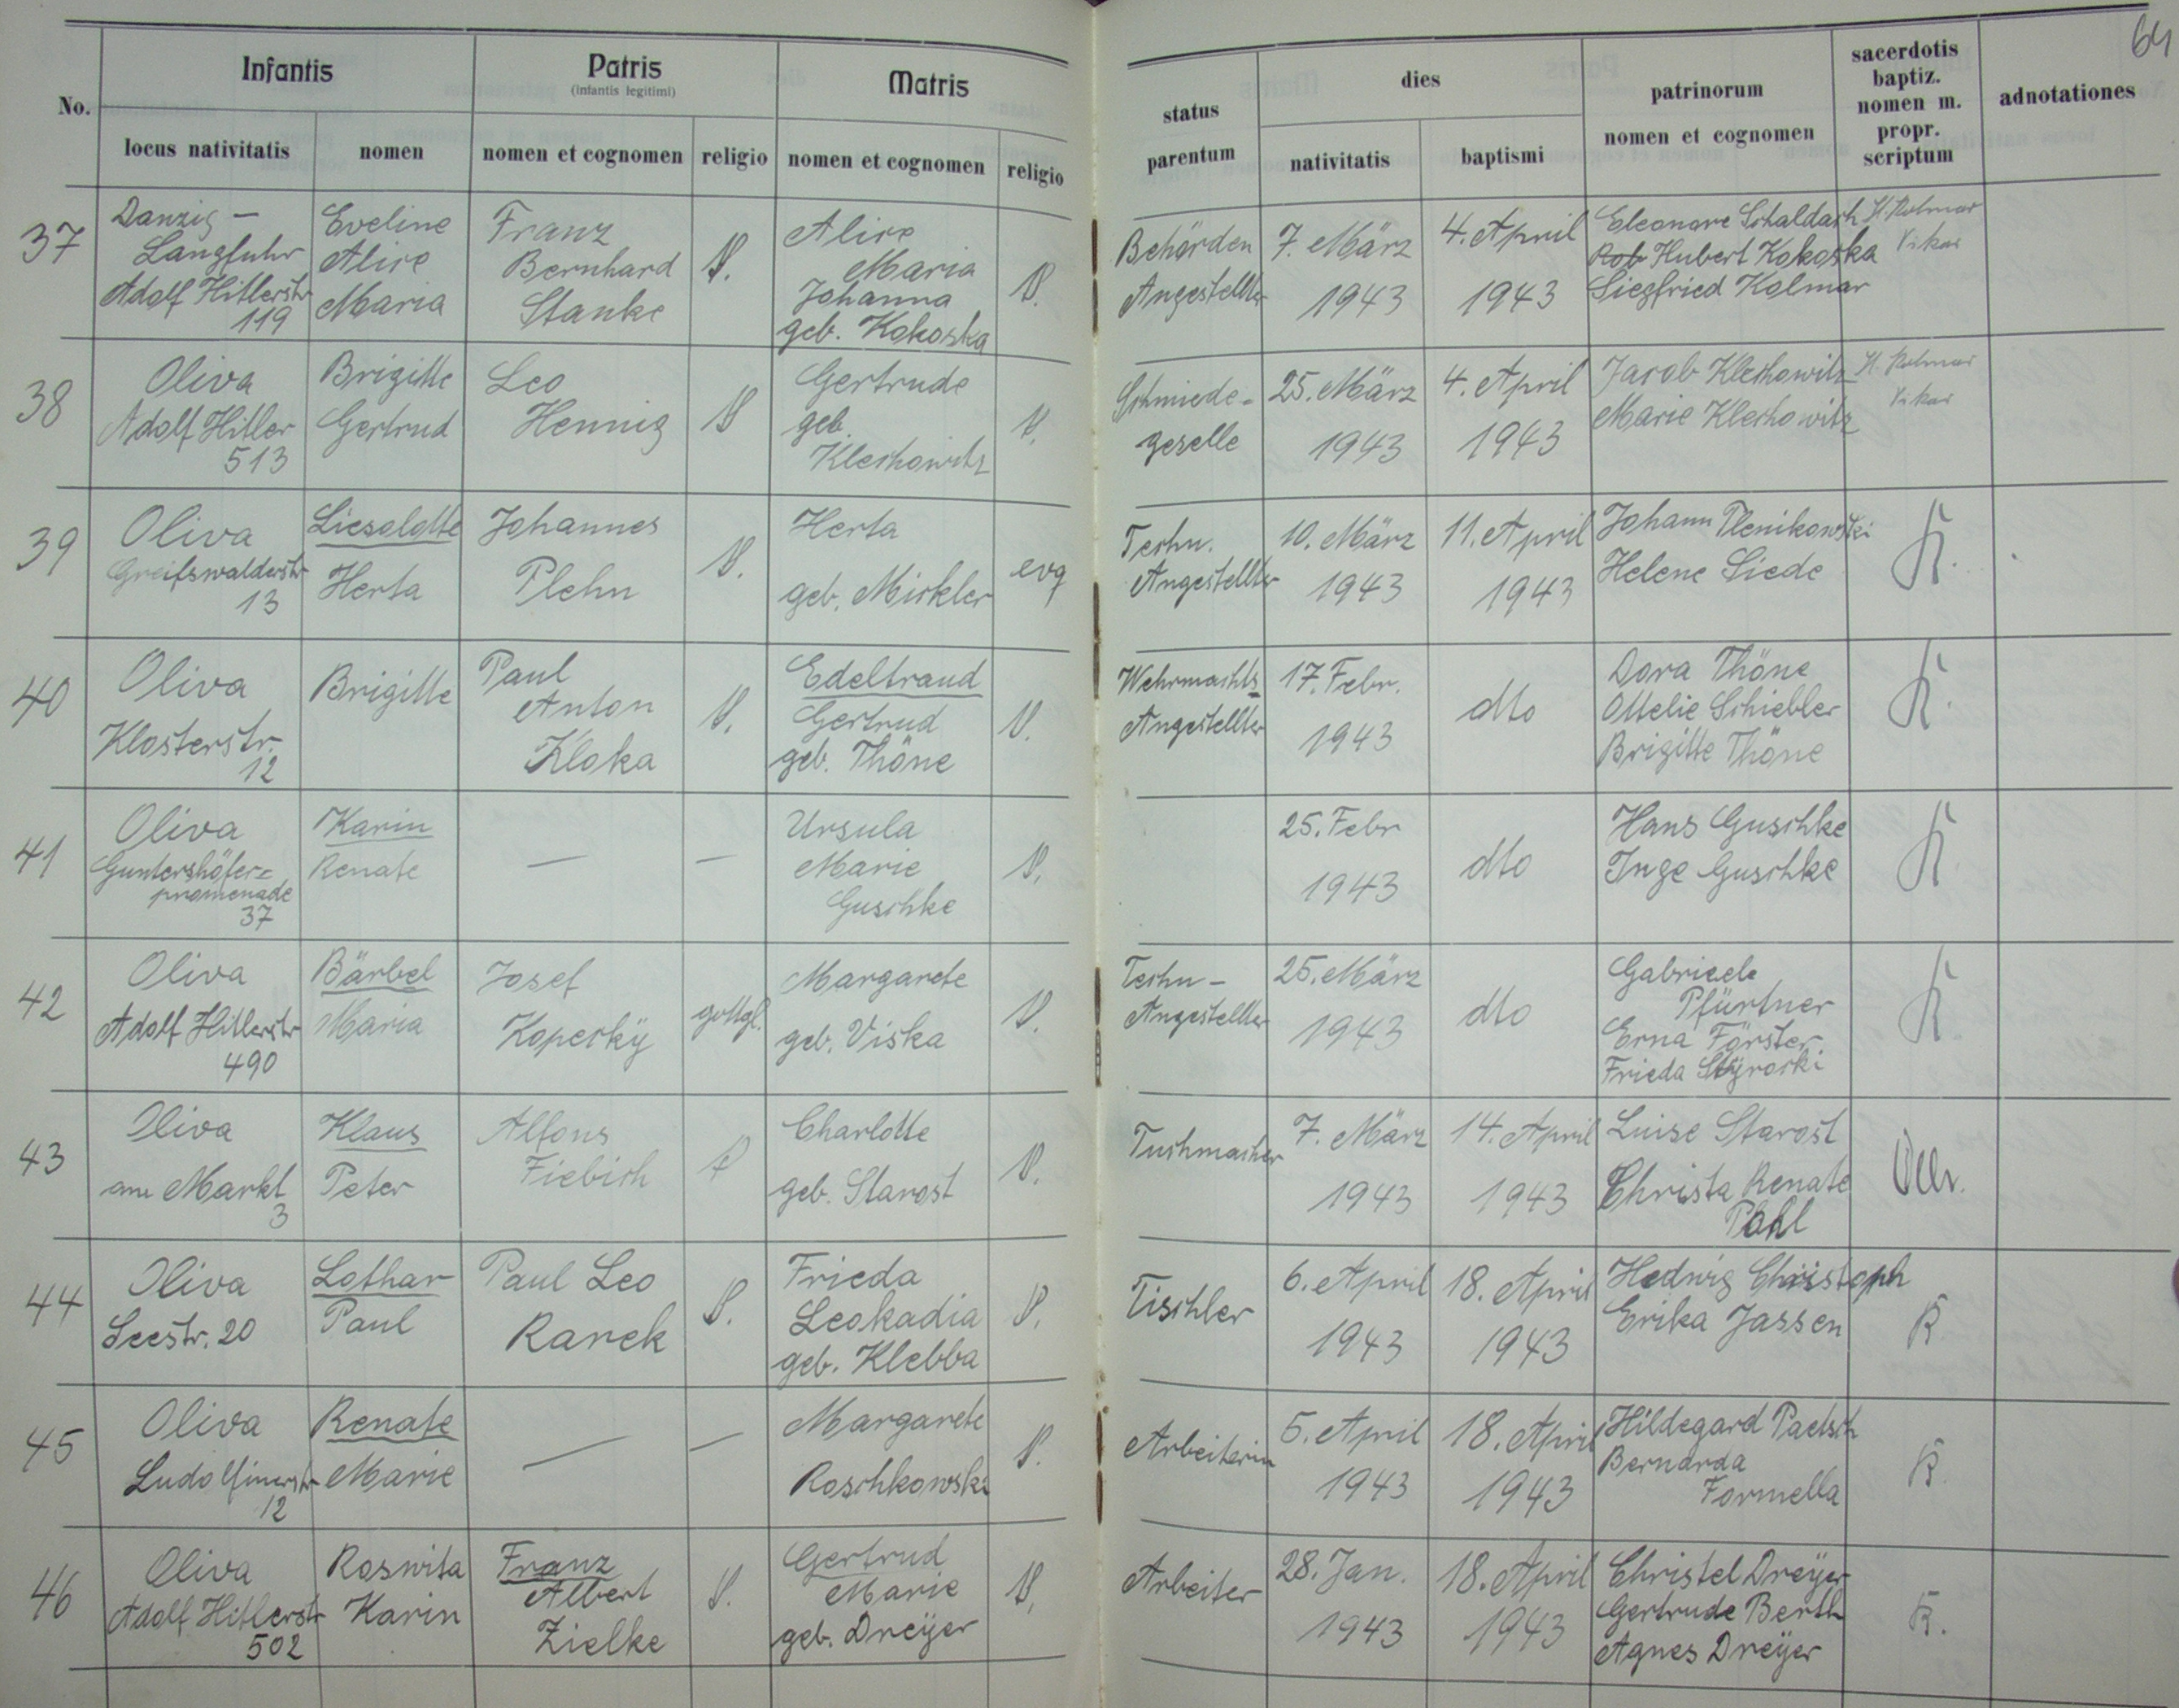 64
No.
Infantis
Patris
(infantis legitimi)
Matris
status
parentum
dies
patrinorum
nomen et cognomen
sacerdotis
baptiz.
nomen m.
propr.
scriptum
adnotationes
locus nativitatis
nomen
nomen et cognomen
religio
nomen et cognomen
religio
nativitatis
baptismi
37
Danzig –
Langfuhr
Adolf Hitlerstr
119
Eveline
Alice
Maria
Franz
Bernhard
Stanke
Alice
Maria
Johanna
geb. Kokoska
Behörden
Angestellter
7. März
1943
4. April
1943
Eleonore Schaldach
Rob Hubert Kokoska
Siegfried Kolmar
Kolmar
Vikar
38
Oliva
Adolf Hitler
513
Brigitte
Gertrud
Leo
Hennig
Gertrude
geb
Klechowitz
Schmiede-
geselle
25. März
1943
4. April
1943
Jacob Klechowitz
Marie Klechowitz
Kolmar
Vikar
39
Oliva
Greifswalderstr
13
Lieselotte
Herta
Johannes
Plehn
Herta
geb. Mickler
evg
Techn.
Angestellter
10. März
1943
11. April
1943
Johann Plenikowski
Helene Siede
K.
40
Oliva
Klosterstr.
12
Brigitte
Paul
Anton
Kloka
Edeltraud
Gertrud
geb. Thöne
Wehrmachts-
Angestellter
17. Febr.
1943
dto
Dora Thöne
Ottelie Schiebler
Brigitte Thöne
K.
41
Oliva
Guntershöfer=
promenade
37
Karin
Renate
—
—
Ursula
Marie
Guschke
25. Febr
1943
dto
Hans Guschke
Inge Guschke
K
42
Oliva
Adolf Hitlerstr
490
Bärbel
Maria
Josef
Kopecky
gottgl.
Margarete
geb. Viska
Techn-
Angestellter
25. März
1943
dto
Gabriele
Pfürtner
Erna Förster
Frieda
K.
43
Oliva
am Markt
3
Klaus
Peter
Alfons
Fiebich
Charlotte
geb. Starost
Tuchmacher
7. März
1943
14. April
1943
Luise Starost
Christa Renate
Pohl
44
Oliva
Seestr. 20
Lothar
Paul
Paul Leo
Ranek
Frieda
Leokadia
geb. Klebba
Tischler
6. April
1943
18. April
1943
Hedwig Christoph
Erika Jassen
K
45
Oliva
Ludolfinerstr
12
Renate
Marie
—
—
Margarete
Roschkowski
Arbeiterin
5. April
1943
18. April
1943
Hildegard Paetsch
Bernarda
Formella
K.
46
Oliva
Adolf Hitlerstr
502
Roswita
Karin
Franz
Albert
Zielke
Gertrud
Marie
geb. Dreÿer
Arbeiter
28. Jan.
1943
18. April
1943
Christel Dreÿer
Gertrude Berth
Agnes Dreÿer
K.